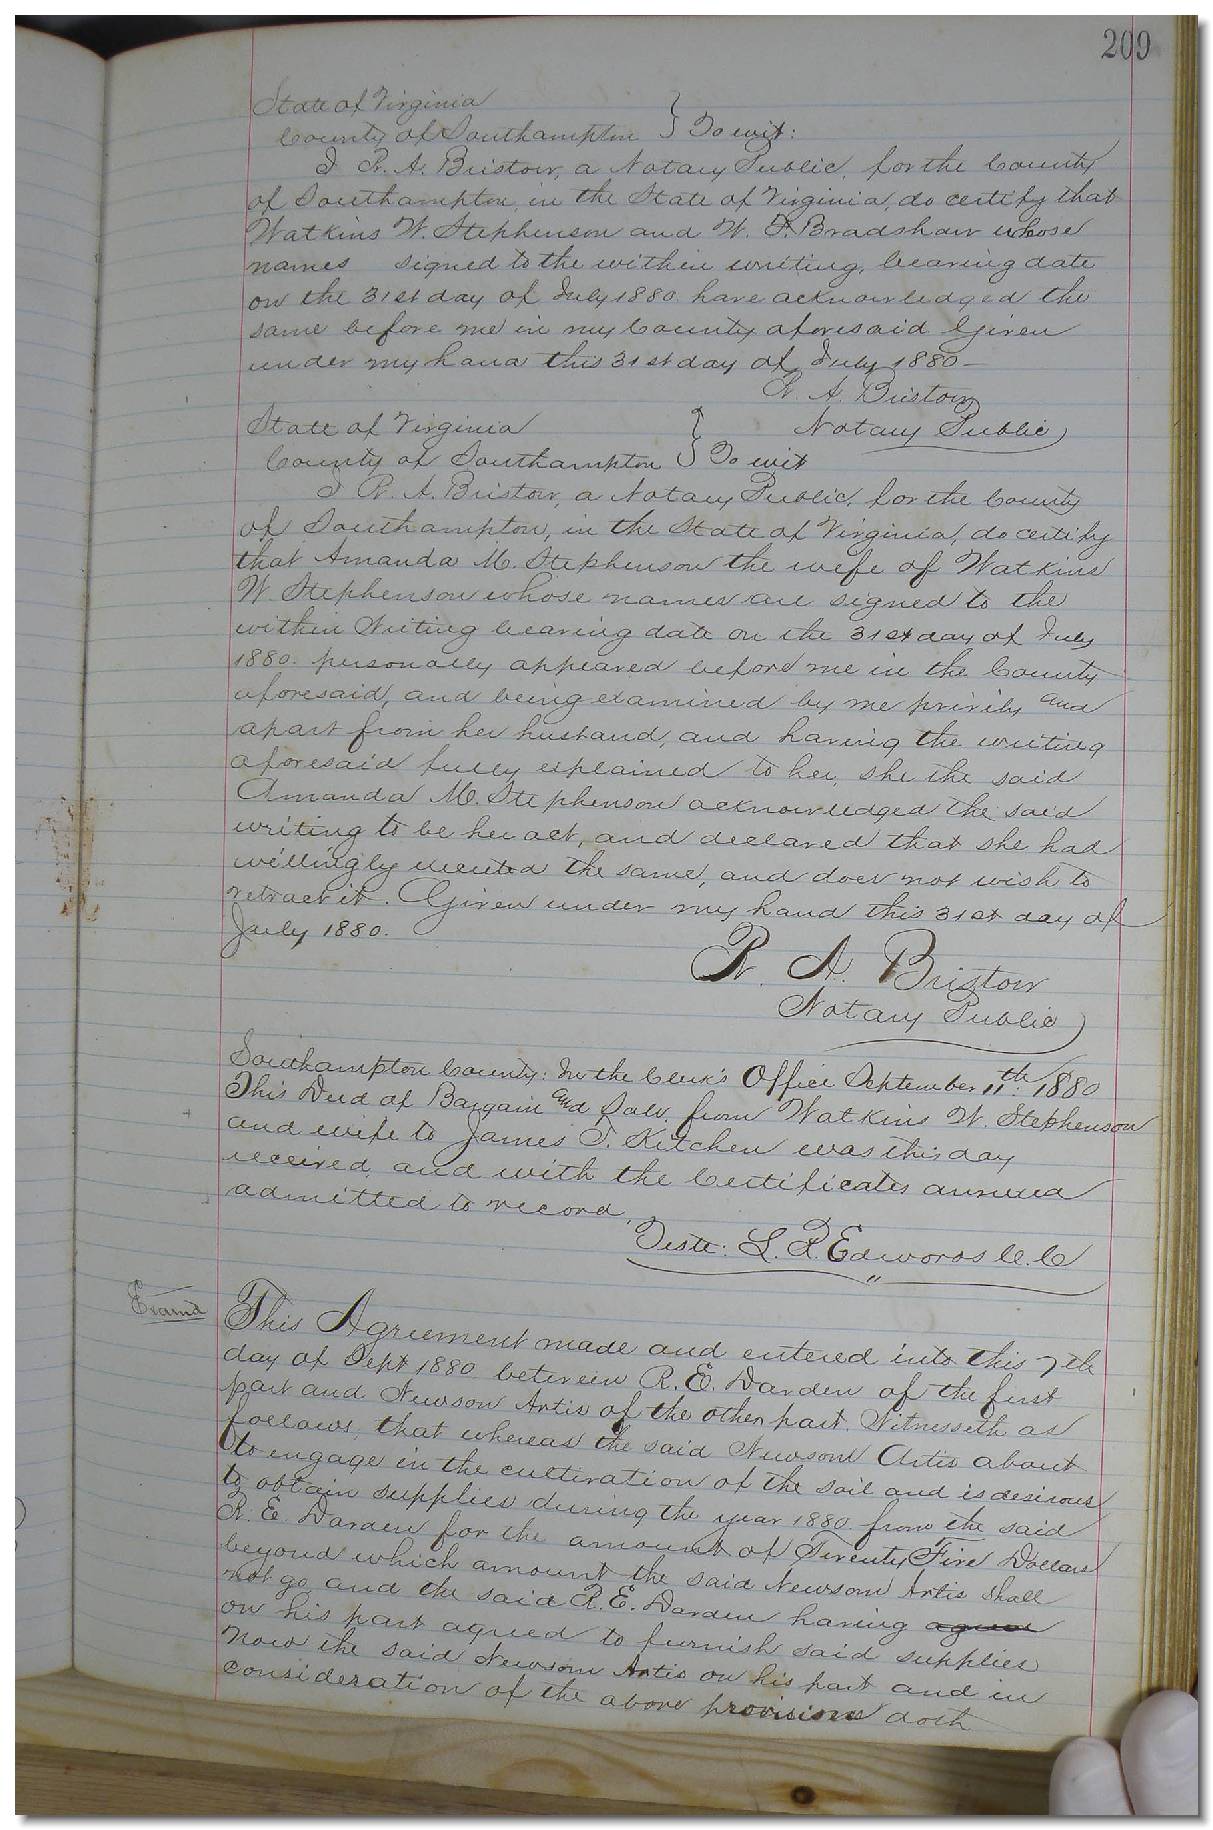 209
State of Virginia
County of Southampton } To wit:
I R. A. Bristow, a Notary Public, for the County
of Southampton, in the State of Virginia, do certify that
Watkins W. Stephenson and W. Bradshaw whose
names signed to the within writing, bearing date
on the 31st day of July 1880 have acknowledged the
same before me in my County aforesaid Given
under my hand this 31st day of July 1880 —
R. A. Bristow
Notary Public
State of Virginia
County of Southampton } To wit
I R. A. Bristow, a Notary Public, for the County
of Southampton, in the State of Virginia, do certify
that Amanda M. Stephenson the wife of Watkins
W. Stephenson whose names are signed to the
within Writing bearing date on the 31st day of July
1880. personally appeared before me in the County
aforesaid, and being examined by me privily and
apart from her husband, and having the writing
aforesaid fully explained to her, she the said
Amanda M. Stephenson acknowledged the said
writing to be her act, and declared that she had
willingly executed the same, and does not wish to
retract it. Given under my hand this 31st day of
July 1880.
R. A. Bristow
Notary Public
Southampton County: In the Clerk's Office September 11th 1880
This Deed of Bargain and Sale from Watkins W. Stephenson
and wife to James T. Kitchen was this day
received and with the Certificates annexed
admitted to record
Teste: L. R. Edwards C.C
Examd
This Agreement made and entered into this 7th
day of Sept 1880 between R. E. Darden of the first
part and Newsom Artis of the other part. Witnesseth as
follows, that whereas the said Newsom Artis about
to engage in the cultivation of the soil and is desirous
to obtain supplies during the year 1880 from the said
R. E. Darden for the amount of Twenty Five Dollars
beyond which amount the said Newsom Artis shall
not go and the said R. E. Darden having agreed
on his part agreed to furnish said supplies
Now the said Newsom Artis on his part and in
consideration of the above provisions doth